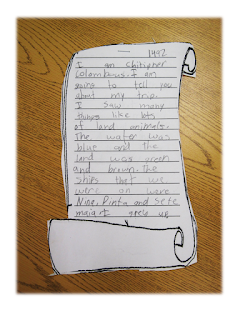 1492
I am Chitipher
Colambous. I am
going to tell you
about my trip.
I saw many
things like lots
of land animals.
The water was
blue and the
land was green
and brown. the
ships that we
were on were
Nina, Pinta and